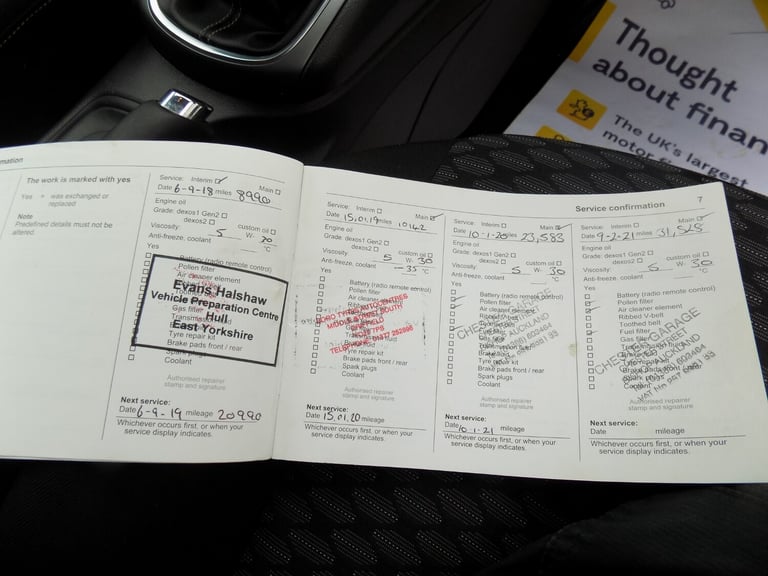 Thought
about finan
The UK's largest
motor
mation
The work is marked with yes
Yes = was exchanged or
replaced
Note
Predefined details must not be
altered.
Service: Interim ☑ Main ☐
Date 6-9-18 miles 8990
Engine oil
Grade: dexos1 Gen2 ☐
dexos2 ☐ custom oil ☐
Viscosity: 5 W- 30
Anti-freeze, coolant °C
Yes
Battery (radio remote control)
Pollen filter
Air cleaner element
Evans Halshaw
Vehicle Preparation Centre
Hull
East Yorkshire
Gas filter
Tyre repair kit
Brake pads front / rear
Spark plugs
Coolant
Authorised repairer
stamp and signature
Next service:
Date 6-9-19 mileage 20990
Whichever occurs first, or when your
service display indicates.
Service confirmation 7
Service: Interim ☐ Main ☑
Date 15.01.19 miles
Engine oil
Grade: dexos1 Gen2 ☐
dexos2 ☐ custom oil ☐
Viscosity: 5 W- 30
Anti-freeze, coolant -35 °C
Yes
Battery (radio remote control)
Pollen filter
Air cleaner
AUTOCENTRES
SOUTH
TELEPHONE
Tyre repair kit
Brake pads front / rear
Spark plugs
Coolant
Authorised repairer
stamp and signature
Next service:
Date 15.01.20 mileage
Whichever occurs first, or when your
service display indicates.
Service: Interim ☐ Main ☑
Date 10-1-20 miles 23,583
Engine oil
Grade: dexos1 Gen2 ☐
dexos2 ☐ custom oil ☐
Viscosity: 5 W- 30
Anti-freeze, coolant °C
Yes
Battery (radio remote control)
Pollen filter
Air cleaner element
Ribbed V-belt
Tyre repair kit
Brake pads front / rear
Spark plugs
Coolant
Authorised repairer
stamp and signature
Next service:
Date 10-1-21 mileage
Whichever occurs first, or when your
service display indicates.
Service: Interim ☐ Main ☑
Date 9-2-21 miles
Engine oil
Grade: dexos1 Gen2 ☐
dexos2 ☐ custom oil ☐
Viscosity: 5 W- 30
Anti-freeze, coolant °C
Yes
Battery (radio remote control)
Pollen filter
Air cleaner element
Ribbed V-belt
Toothed belt
Fuel filter
Gas filter
GARAGE
Tyre repair kit
Brake pads front / rear
Spark plugs
Coolant
Authorised repairer
stamp and signature
Next service:
Date mileage
Whichever occurs first, or when your
service display indicates.